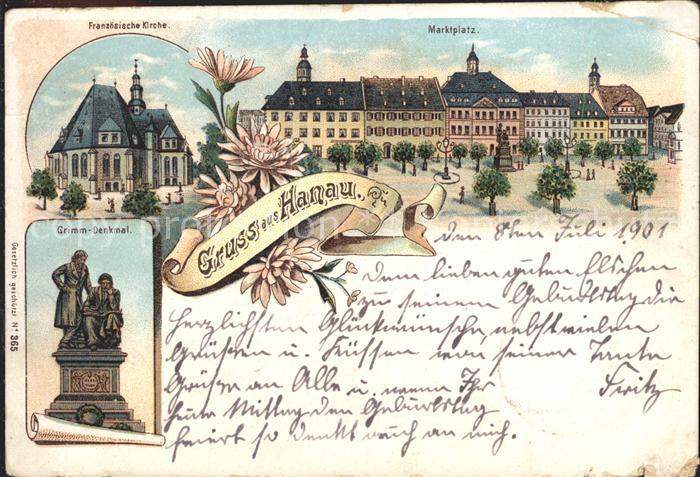 Französische Kirche.
Marktplatz.
Gruss aus Hanau.
Grimm-Denkmal.
Gesetzlich geschützt Nº 365
den 8ten Juli 1901
Dem lieben guten Elschen
zu seinem Geburtstag die
herzlichsten Glückwünsche, nebst vielen
Grüßen u. Küssen von seiner Tante
Grüße an Alle u. wenn Ihr Fritz
heute Mittag den Geburtstag
feiert so denkt auch an mich.